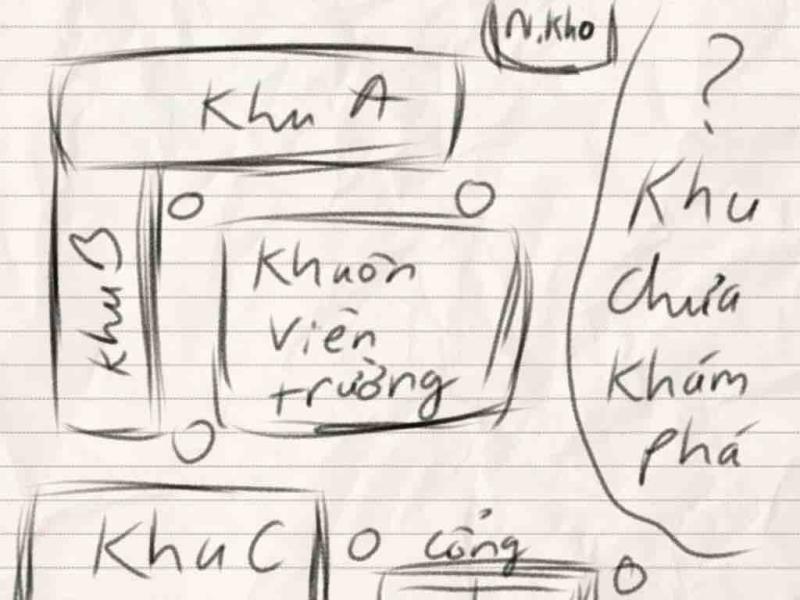 N.Kho
Khu A
?
Khu
chưa
Khám
phá
Khu B
Khuôn
Viên
trường
Khu C
cổng